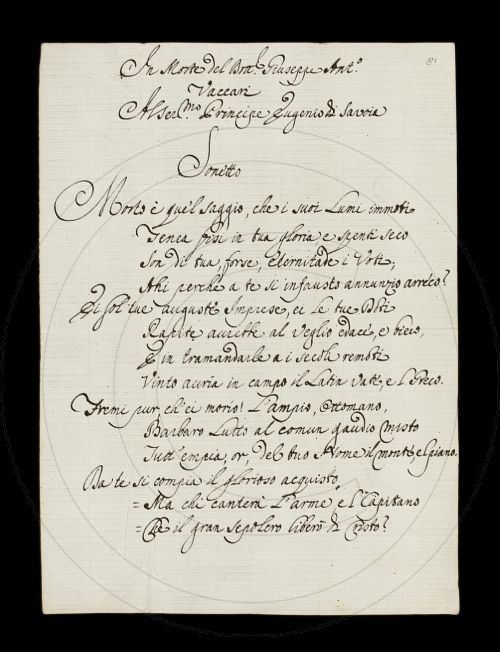 81
In Morte del Dot.r Giuseppe Ant.o
Vaccari
Al Ser.mo Principe Eugenio di Savoia
Sonetto
Morto è quel saggio, che i suoi Lumi immoti
Tenea fisi in tua gloria, e spenti seco
Son di tua, forse, eternitade i Voti;
Ahi perchè a te sì infausto annunzio arreco?
Ei sol tue auguste Imprese, ei le tue Doti
Rapite avrebbe al Veglio edace, e bieco,
E in tramandarle a i secoli remoti
Vinto avria in campo il Latin Vate, e l Greco.
Fremi pur, ch'ei morìo! L'ampio, Ottomano,
Barbaro Lutto al comun gaudio misto
Tutt'empia, or, del tuo Nome il monte, e l piano.
Da te si compia il glorioso acquisto,
= Ma chi canterà L'arme, e l Capitano
= Che il gran sepolcro liberò di Cristo?